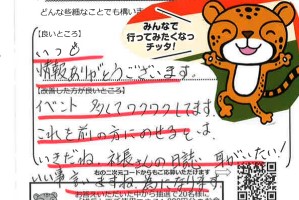 どんな些細なことでも構いま
みんなで
行ってみたくなっ
チッタ!
【良いところ】
いつも
情報ありがとうございます。
【改善した方が良いところ】
イベント 多くてワクワクしてます。
これを前の方にのせるとは、
いきだね。社長さんの日誌、耳がいたい!
右の二次元コードからもご応募いただけます
いい事言いますね、為になります